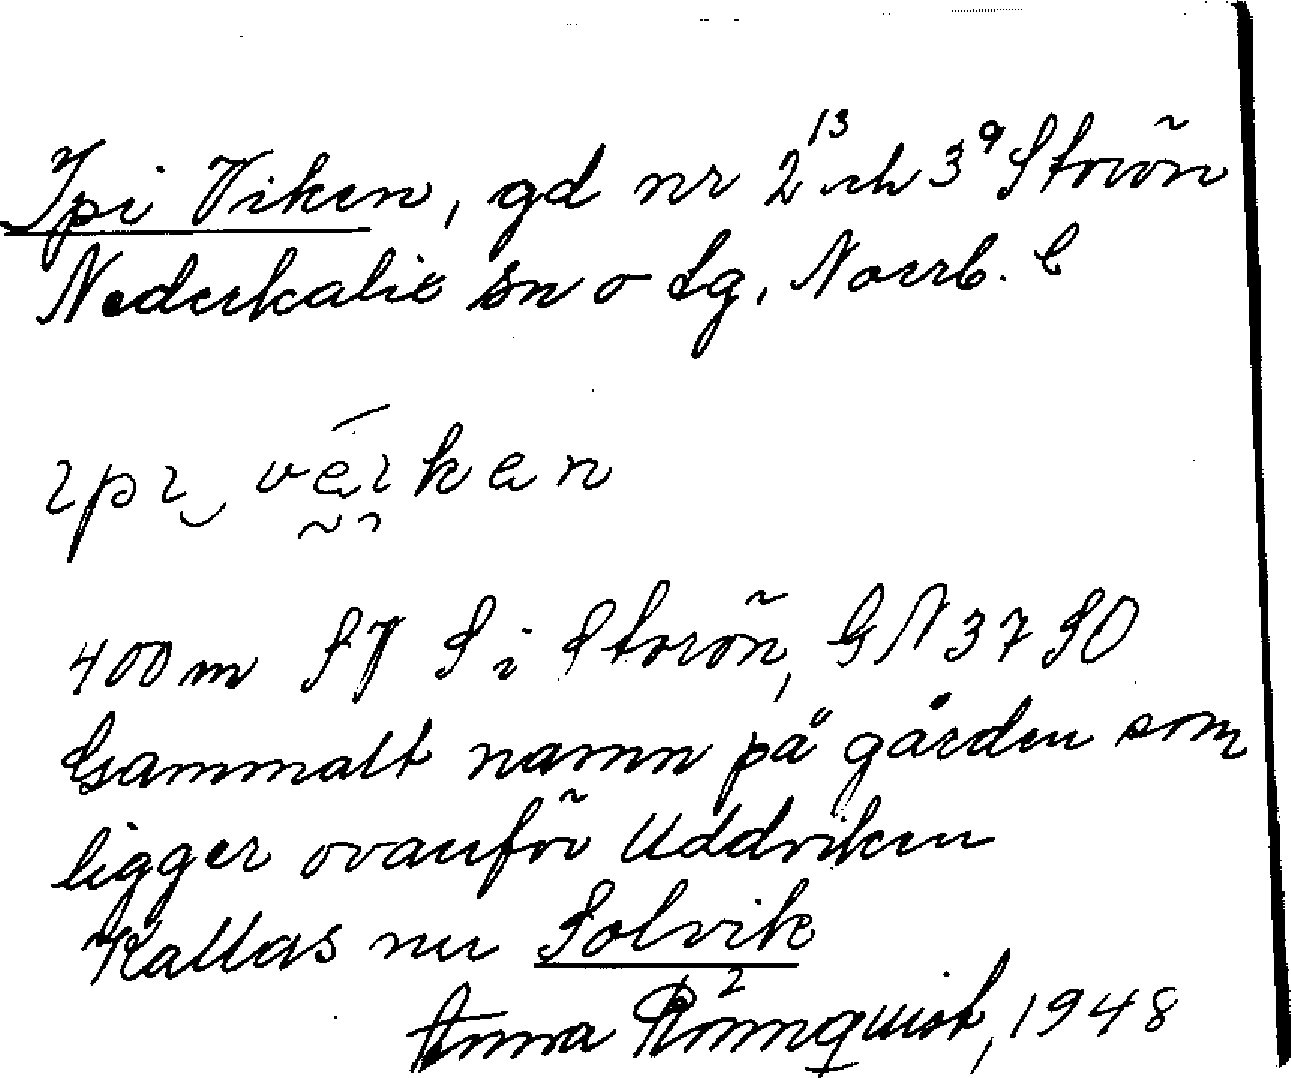 Ipi Viken, gd nr 2¹³ och 3⁹ Storön
Nederkalix sn o tg, Norrb. l
ıpı vé̄ıken
400 m SV S i Storön, GN 37 SO
Gammalt namn på gården som
ligger ovanför Uddviken
Kallas nu Solvik
Anna Rönnquist, 1948